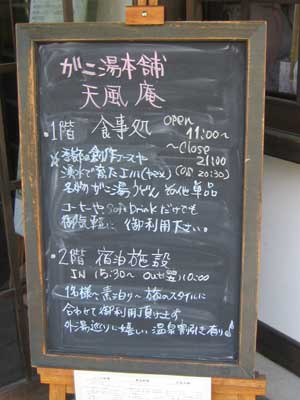 がニ湯本舗
天風庵
・1階 食事処 open 11:00～
～close 21:00
季節の創作コースや (OS 20:30)
湧水で育ったエノハ(ヤマメ)
名物がに湯うどん その他単品
コーヒーやSoft Drinkだけでも
御気軽に 御利用下さい。
・2階 宿泊施設
IN 15:30～ Out(翌)10:00
1名様～素泊り～旅のスタイルに
合わせて御利用頂けます
外湯巡りに嬉しい温泉割引き有り♪